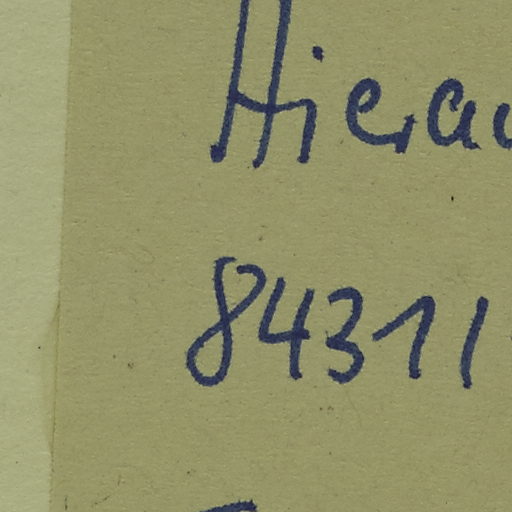 Hiera
84311